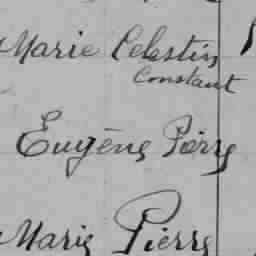 Marie Celestin
Constant
Eugène Pierre
Marie Pierre